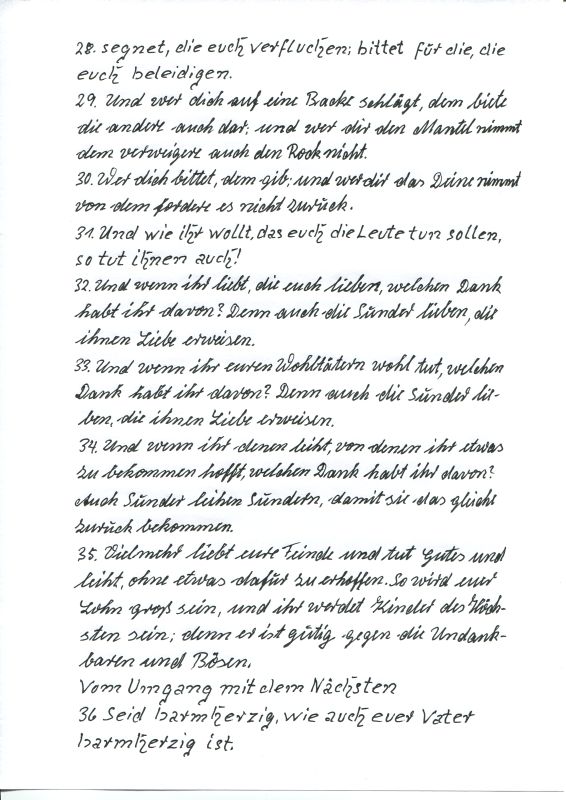 28. segnet, die euch verfluchen; bittet für die, die
euch beleidigen.
29. Und wer dich auf eine Backe schlägt, dem biete
die andere auch dar; und wer dir den Mantel nimmt
dem verweigere auch den Rock nicht.
30. Wer dich bittet, dem gib; und wer dir das Deine nimmt
von dem fordere es nicht zurück.
31. Und wie ihr wollt, das euch die Leute tun sollen,
so tut ihnen auch!
32. Und wenn ihr liebt, die euch lieben, welchen Dank
habt ihr davon? Denn auch die Sünder lieben, die
ihnen Liebe erweisen.
33. Und wenn ihr euren Wohltätern wohl tut, welchen
Dank habt ihr davon? Denn auch die Sünder lie-
ben, die ihnen Liebe erweisen.
34. Und wenn ihr denen leiht, von denen ihr etwas
zu bekommen hofft, welchen Dank habt ihr davon?
Auch Sünder leihen Sündern, damit sie das gleiche
zurück bekommen.
35. Vielmehr liebt eure Feinde und tut Gutes und
leiht, ohne etwas dafür zu erhoffen. So wird euer
Lohn groß sein, und ihr werdet Kinder des Höch-
sten sein; denn er ist gütig gegen die Undank-
baren und Bösen.
Vom Umgang mit dem Nächsten
36 Seid barmherzig, wie auch euer Vater
barmherzig ist.